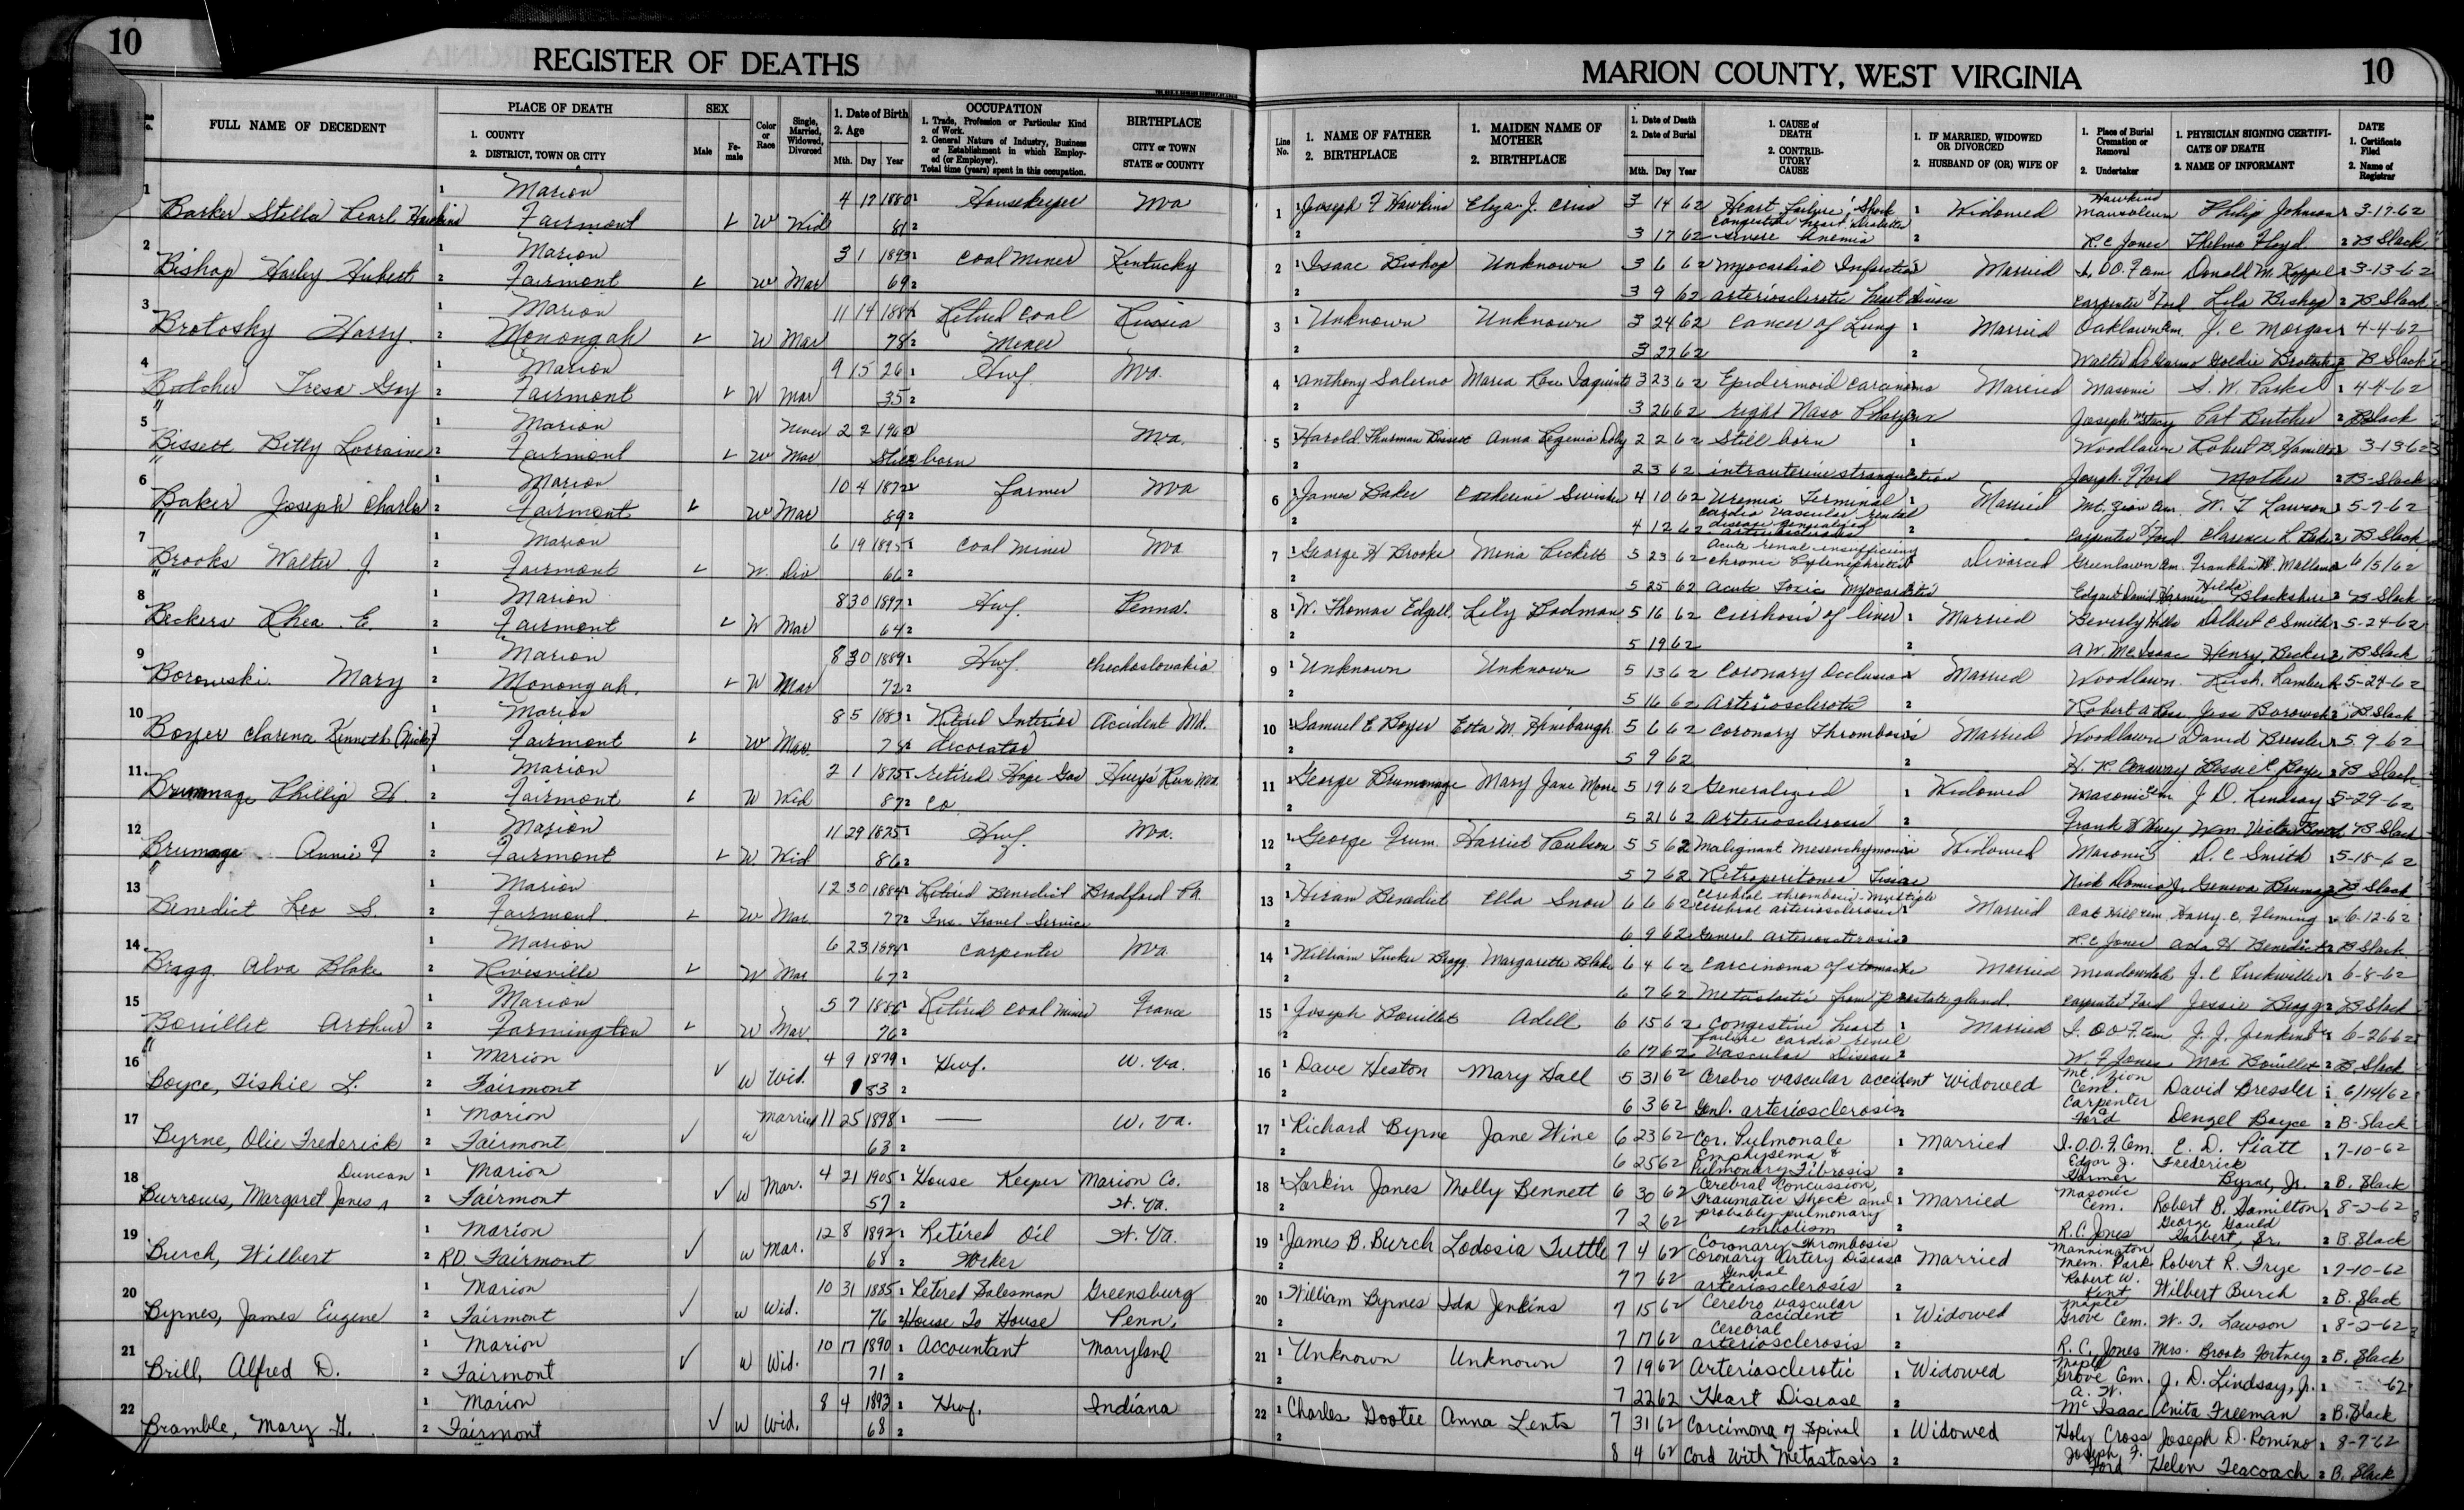 10
REGISTER OF DEATHS
MARION COUNTY, WEST VIRGINIA
10
Line No.
FULL NAME OF DECEDENT
PLACE OF DEATH
1. COUNTY
2. DISTRICT, TOWN OR CITY
SEX
Male
Fe-male
Color or Race
Single, Married, Widowed, Divorced
1. Date of Birth
2. Age
Mth. Day Year
OCCUPATION
1. Trade, Profession or Particular Kind of Work.
2. General Nature of Industry, Business or Establishment in which Employed (or Employer).
Total time (years) spent in this occupation.
BIRTHPLACE
CITY or TOWN
STATE or COUNTY
Line No.
1. NAME OF FATHER
2. BIRTHPLACE
1. MAIDEN NAME OF MOTHER
2. BIRTHPLACE
1. Date of Death
2. Date of Burial
Mth. Day Year
1. CAUSE of DEATH
2. CONTRIB-UTORY CAUSE
1. IF MARRIED, WIDOWED OR DIVORCED
2. HUSBAND OF (OR) WIFE OF
1. Place of Burial Cremation or Removal
2. Undertaker
1. PHYSICIAN SIGNING CERTIFI-CATE OF DEATH
2. NAME OF INFORMANT
DATE
1. Certificate Filed
2. Name of Registrar
1 Barker Stella Pearl Hawkins 1 Marion 2 Fairmont W Wid 4 12 1880 81 Housekeeper Wva
1 Joseph F Hawkins Eliza J. Criss 3 14 62 Heart Failure, Shock Congestive heart Diabetes Widowed Hawkins Mausoleum Philip Johnson 3-17-62
3 17 62 severe Anemia R C Jones Thelma Floyd B Slack
2 Bishop Harley Hubert 1 Marion 2 Fairmont W Mar 3 1 1893 69 Coal Miner Kentucky
2 Isaac Bishop Unknown 3 6 62 Myocardial Infarction Married I.O.O.F. Cem Donald M. Koppel 3-13-62
3 9 62 arteriosclerotic heart disease Carpenter & Ford Lela Bishop B Slack
3 Brotosky Harry. 1 Marion 2 Monongah W Mar 11 14 78 Retired Coal Miner Russia
3 Unknown Unknown 3 24 62 Cancer of Lung Married Oaklawn Cem. J. C Morgan 4-4-62
3 27 62 Goldie Brotosky B Slack
4 Butcher Tresa Gay 1 Marion 2 Fairmont W Mar 9 15 26 35 Hwf. Wva.
4 Anthony Salerno Maria Rose 3 23 62 Epidermoid Carcinoma Married Masonic S. W. Parks 4-4-62
3 26 62 right Naso Pharynx Joseph Pat Butcher B Slack
5 Bissett Betty Lorraine 1 Marion 2 Fairmont W Never Mar 2 2 1962 Stillborn Wva.
5 Harold Thurman Bissett Anna 2 2 62 Still born Woodlawn Robert B. Hamilton 3-13-62
2 3 62 intrauterine strangulation Joseph F Ford Mother B-Slack
6 Baker Joseph Charles 1 Marion 2 Fairmont W Mar 10 4 1872 89 Farmer Wva
6 James Baker Catherine 4 10 62 Uremia Terminal Cardio Vascular renal Married Mt. Zion Cem. W. T Lawson 5-7-62
4 12 62 disease generalized arteriosclerosis Carpenter & Ford Clarence L Baker B Slack
7 Brooks Walter J. 1 Marion 2 Fairmont W. Div 6 19 1895 66 Coal Miner Wva
7 George H Brooks Mona Pickett 5 23 62 Acute renal insufficiency Chronic Pyelonephritis Divorced Greenlawn Cem. Franklin B. Mallamo 6/5/62
5 25 62 Acute Toxic Myocarditis Hilda Blackshire B Slack
8 Beckers Rhea E. 1 Marion 2 Fairmont W Mar 8 30 1897 64 Hwf. Penna.
8 W. Thomas Edgell Lily Bodman 5 16 62 Cirrhosis of liver Married Beverly Hills Delbert C Smith 5-24-62
5 19 62 A W. McIsaac Henry Beckers B Slack
9 Borowski Mary 1 Marion 2 Monongah. W Mar 8 30 1889 72 Hwf. Chechoslovakia
9 Unknown Unknown 5 13 62 Coronary Occlusion Married Woodlawn. Rush. Lambert 5-24-62
5 16 62 Arteriosclerotic Robert A Rose Jess Borowski B Slack
10 Boyer Clarence Kenneth (Nick) 1 Marion 2 Fairmont W Mar. 8 5 1883 78 Retired Interior decorator Accident Md.
10 Samuel E Boyer Etta M. Hinebaugh 5 6 62 Coronary Thrombosis Married Woodlawn David Bressler 5-9-62
5 9 62 H. R. Conaway Bessie E Boyer B Slack
11 Brummage Phillip H. 1 Marion 2 Fairmont W Wid 2 1 1875 87 retired Hope Gas Co Run Wva.
11 George Brummage Mary Jane Moore 5 19 62 Generalized Widowed Masonic Cem J D. Lindsay 5-29-62
5 21 62 Arteriosclerosis Wm Victor B Slack
12 Brumage Annie F 1 Marion 2 Fairmont W Wid 11 29 1875 86 Hwf. Wva.
12 George Frum Harriet Poulson 5 5 62 Malignant Mesenchymoma Widowed Masonic D. C Smith 5-18-62
5 7 62 Retroperitoneal Tissue Nick Domico Jr. Geneva Brumage B Slack
13 Benedict Leo S. 1 Marion 2 Fairmont. W Mar. 12 30 1884 77 Retired Benedict Inc. Travel Service Bradford Pa.
13 Hiram Benedict Ella Snow 6 6 62 Cerebral thrombosis-Multiple Cerebral arteriosclerosis Married Oak Hill Cem. Harry C. Fleming 6-12-62
6 9 62 General Arteriosclerosis R. C Jones Ada H Benedict B Slack
14 Bragg. Alva Blake 1 Marion 2 Rivesville W Mar 6 23 1894 67 Carpenter Wva
14 William Tucker Bragg. Margarette Blake 6 4 62 Carcinoma of stomach Married Meadowdale J. C 6-8-62
6 7 62 Metastatic from prostate gland. Carpenter & Ford Jessie Bragg B Slack
15 Bouillet Arthur 1 Marion 2 Farmington W Mar. 5 7 1886 76 Retired coal miner France
15 Joseph Bouillet Adell 6 15 62 Congestive heart failure cardio renal Married I. O O F. Cem J. J. Jenkins 6-26-62
6 17 62 Vascular Disease W. F Jones Mrs Bouillet B Slack
16 Boyce, Tishie L. 1 Marion 2 Fairmont W Wid. 4 9 1879 83 Hwf. W. Va.
16 Dave Heston Mary Hall 5 31 62 Cerebro vascular accident Widowed Mt. Zion Cem. David Bressler 6/14/62
6 3 62 Genl. arteriosclerosis Carpenter & Ford Denzel Boyce B-Slack
17 Byrne, Olie Frederick 1 Marion 2 Fairmont W Married 11 25 1898 63 — W. Va.
17 Richard Byrne Jane Wine 6 23 62 Cor. Pulmonale Married I.O.O.F. Cem. E. D. Piatt 7-10-62
6 25 62 Emphysema & Pulmonary Fibrosis Edgar J. Farmer Frederick Byrne, Jr. B. Slack
18 Burrows, Margaret Janes Duncan 1 Marion 2 Fairmont W Mar. 4 21 1905 57 House Keeper Marion Co. W. Va.
18 Larkin Janes Molly Bennett 6 30 62 Cerebral Concussion, Traumatic Shock and Married Masonic Cem. Robert B. Hamilton 8-2-62
7 2 62 probably pulmonary embolism R. C. Jones George Gould Harbert, Sr. B. Slack
19 Burch, Wilbert 1 Marion 2 RD Fairmont W Mar. 12 8 1892 68 Retired Oil Worker W. Va.
19 James B. Burch Lodosia Tuttle 7 4 62 Coronary Thrombosis Coronary Artery Disease Married Mannington Mem. Park Robert R. Frye 7-10-62
7 7 62 General arteriosclerosis Robert W. Kent Wilbert Burch B. Slack
20 Byrnes, James Eugene 1 Marion 2 Fairmont W Wid. 10 31 1885 76 Retered Salesman House To House Greensburg Penn.
20 William Byrnes Ida Jenkins 7 15 62 Cerebro vascular accident Widowed Maple Grove Cem. W. T. Lawson 8-2-62
7 17 62 Cerebral arteriosclerosis R. C. Jones Mrs. Brooks Fortney B. Slack
21 Brill, Alfred D. 1 Marion 2 Fairmont W Wid. 10 17 1890 71 Accountant Maryland
21 Unknown Unknown 7 19 62 Arteriosclerotic Widowed Maple Grove Cem. J. D. Lindsay, Jr. - -62
7 22 62 Heart Disease A. W. McIsaac Anita Freeman B. Slack
22 Bramble, Mary G. 1 Marion 2 Fairmont W Wid. 8 4 1893 68 Hwf. Indiana
22 Charles Gootee Anna Lents 7 31 62 Carcimona of Spinal Widowed Holy Cross Joseph D. Romino 8-7-62
8 4 62 Cord With Metastasis Joseph F. Ford Helen Teacoach B. Slack